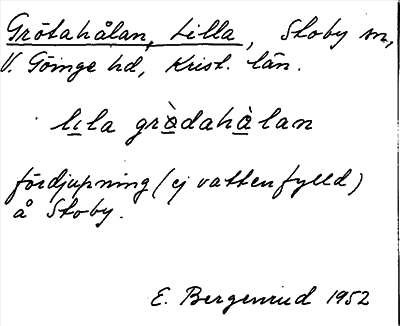 Grötahålan, Lilla, Stoby sn,
V. Göinge hd, Krist. län.
lila gròdahàlan
fördjupning (ej vattenfylld)
å Stoby.
E. Bergenrud 1952